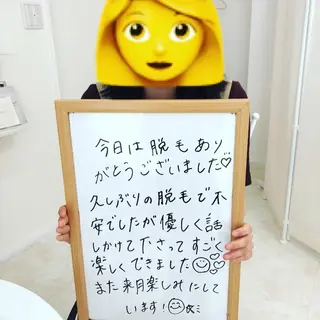 今日は脱毛あり
がとうございました♡
久しぶりの脱毛で不
安でしたが優しく話
しかけて下さってすごく
楽しくできました☺♡♡
また来月楽しみにして
います!☺